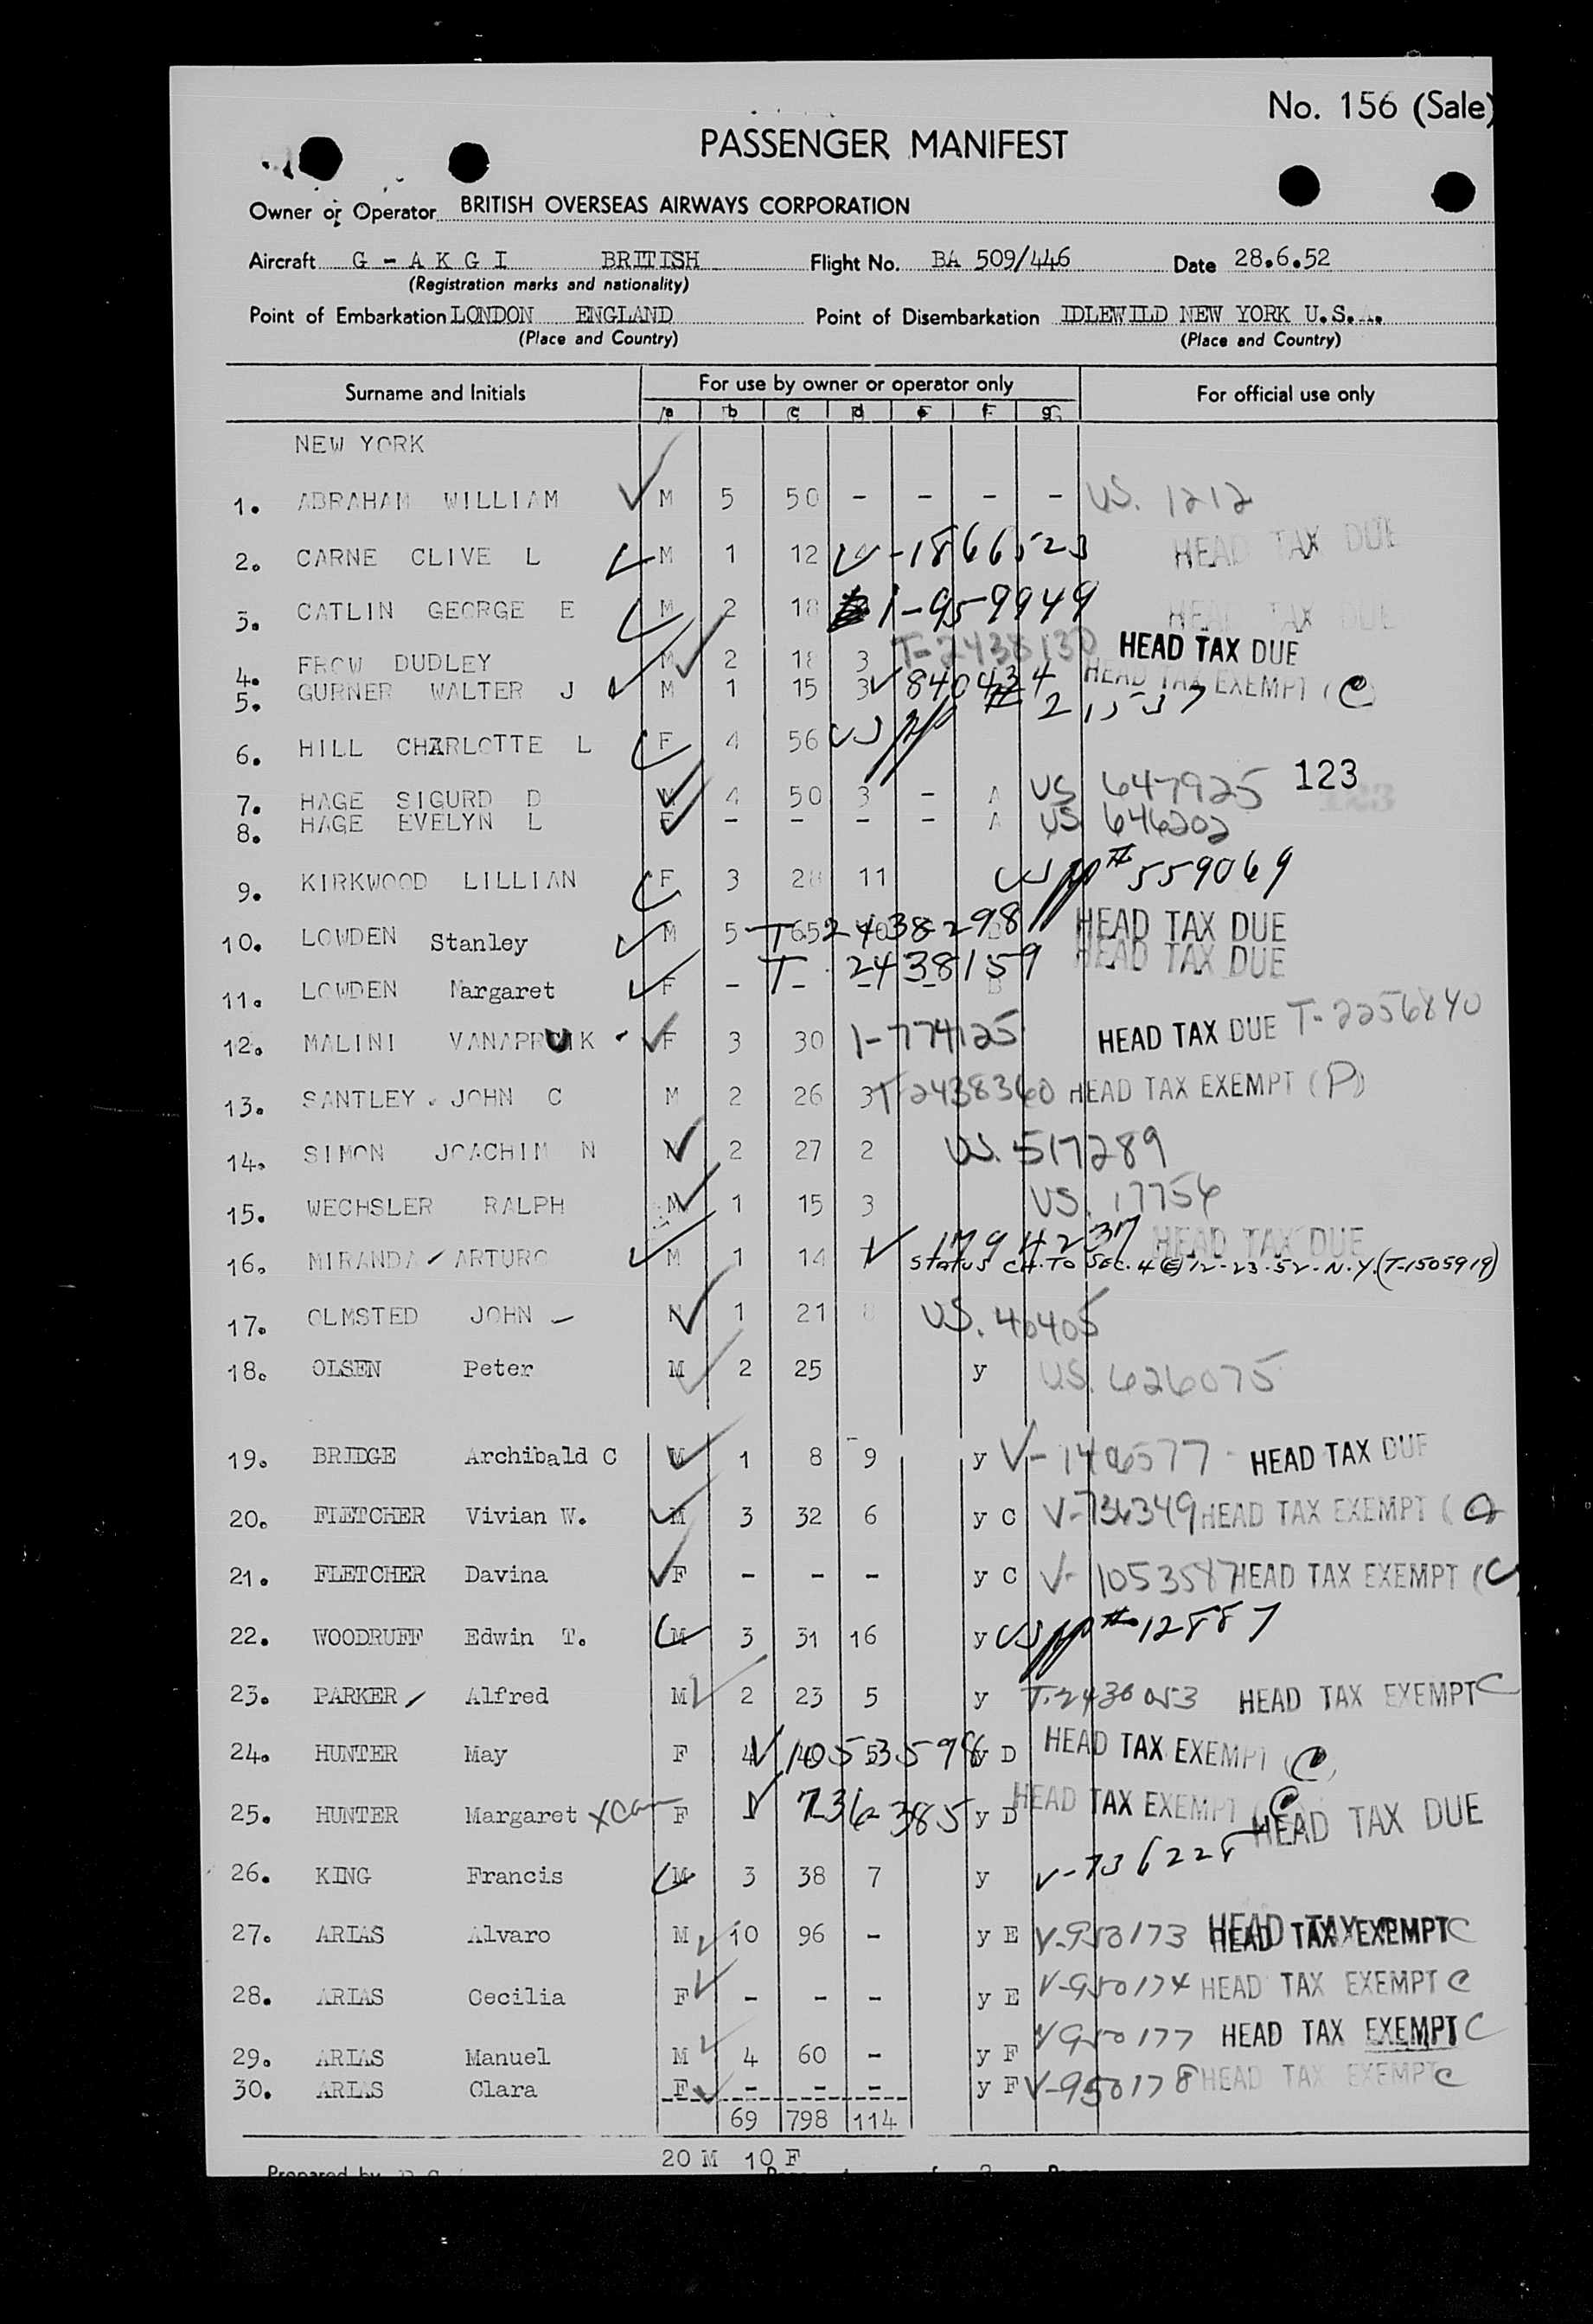 No. 156 (Sale)
PASSENGER MANIFEST
Owner or Operator BRITISH OVERSEAS AIRWAYS CORPORATION
Aircraft G - A K G I BRITISH Flight No. BA 509/446 Date 28.6.52
(Registration marks and nationality)
Point of Embarkation LONDON ENGLAND Point of Disembarkation IDLEWILD NEW YORK U.S.A.
(Place and Country) (Place and Country)
Surname and Initials For use by owner or operator only For official use only
a b c d e f g
NEW YORK
1. ABRAHAM WILLIAM M 5 50 - - - - US. 1212
2. CARNE CLIVE L M 1 12 V-1866523 HEAD TAX DUE
3. CATLIN GEORGE E M 2 18 1-959949 HEAD TAX DUE
4. FROW DUDLEY M 2 18 3 T-2438130 HEAD TAX DUE
5. GURNER WALTER J M 1 15 3 840434 HEAD TAX EXEMPT (C)
6. HILL CHARLOTTE L F 4 56 US pp # 21537
7. HAGE SIGURD D M 4 50 3 - A US 647925 123
8. HAGE EVELYN L F - - - - A US 646202
9. KIRKWOOD LILLIAN F 3 28 11 US pp# 559069
10. LOWDEN Stanley M 5 65 T 2438298 HEAD TAX DUE
11. LOWDEN Margaret F - - - - B T 2438159 HEAD TAX DUE
12. MALINI F 3 30 1-774125 HEAD TAX DUE T-2256840
13. SANTLEY JOHN C M 2 26 3 T-2438360 HEAD TAX EXEMPT (P)
14. SIMON JOACHIM N M 2 27 2 US. 517289
15. WECHSLER RALPH M 1 15 3 US. 17756
16. MIRANDA ARTURO M 1 14 V 1794237 HEAD TAX DUE
Status CH. TO SEC. 4(E) 12-23-52-N.Y. (T-1505919)
17. OLMSTED JOHN M 1 21 8 US. 40405
18. OLSEN Peter M 2 25 y US. 626075
19. BRIDGE Archibald C M 1 8 9 y V-1406577 HEAD TAX DUE
20. FLETCHER Vivian W. M 3 32 6 y C V-736349 HEAD TAX EXEMPT (C)
21. FLETCHER Davina F - - - y C V-1053587 HEAD TAX EXEMPT (C)
22. WOODRUFF Edwin T. M 3 31 16 y US pp# 12887
23. PARKER Alfred M 2 23 5 y T-2438053 HEAD TAX EXEMPT C
24. HUNTER May F 4 V 1053598 y D HEAD TAX EXEMPT (C)
25. HUNTER Margaret F V 736385 y D HEAD TAX EXEMPT (C)
HEAD TAX DUE
26. KING Francis M 3 38 7 y V-736228
27. ARIAS Alvaro M 10 96 - y E V-950173 HEAD TAX EXEMPT C
28. ARIAS Cecilia F - - - y E V-950174 HEAD TAX EXEMPT C
29. ARIAS Manuel M 4 60 - y F V950177 HEAD TAX EXEMPT C
30. ARIAS Clara F - - - y F V-950178 HEAD TAX EXEMPT C
69 798 114
20 M 10 F
Prepared by